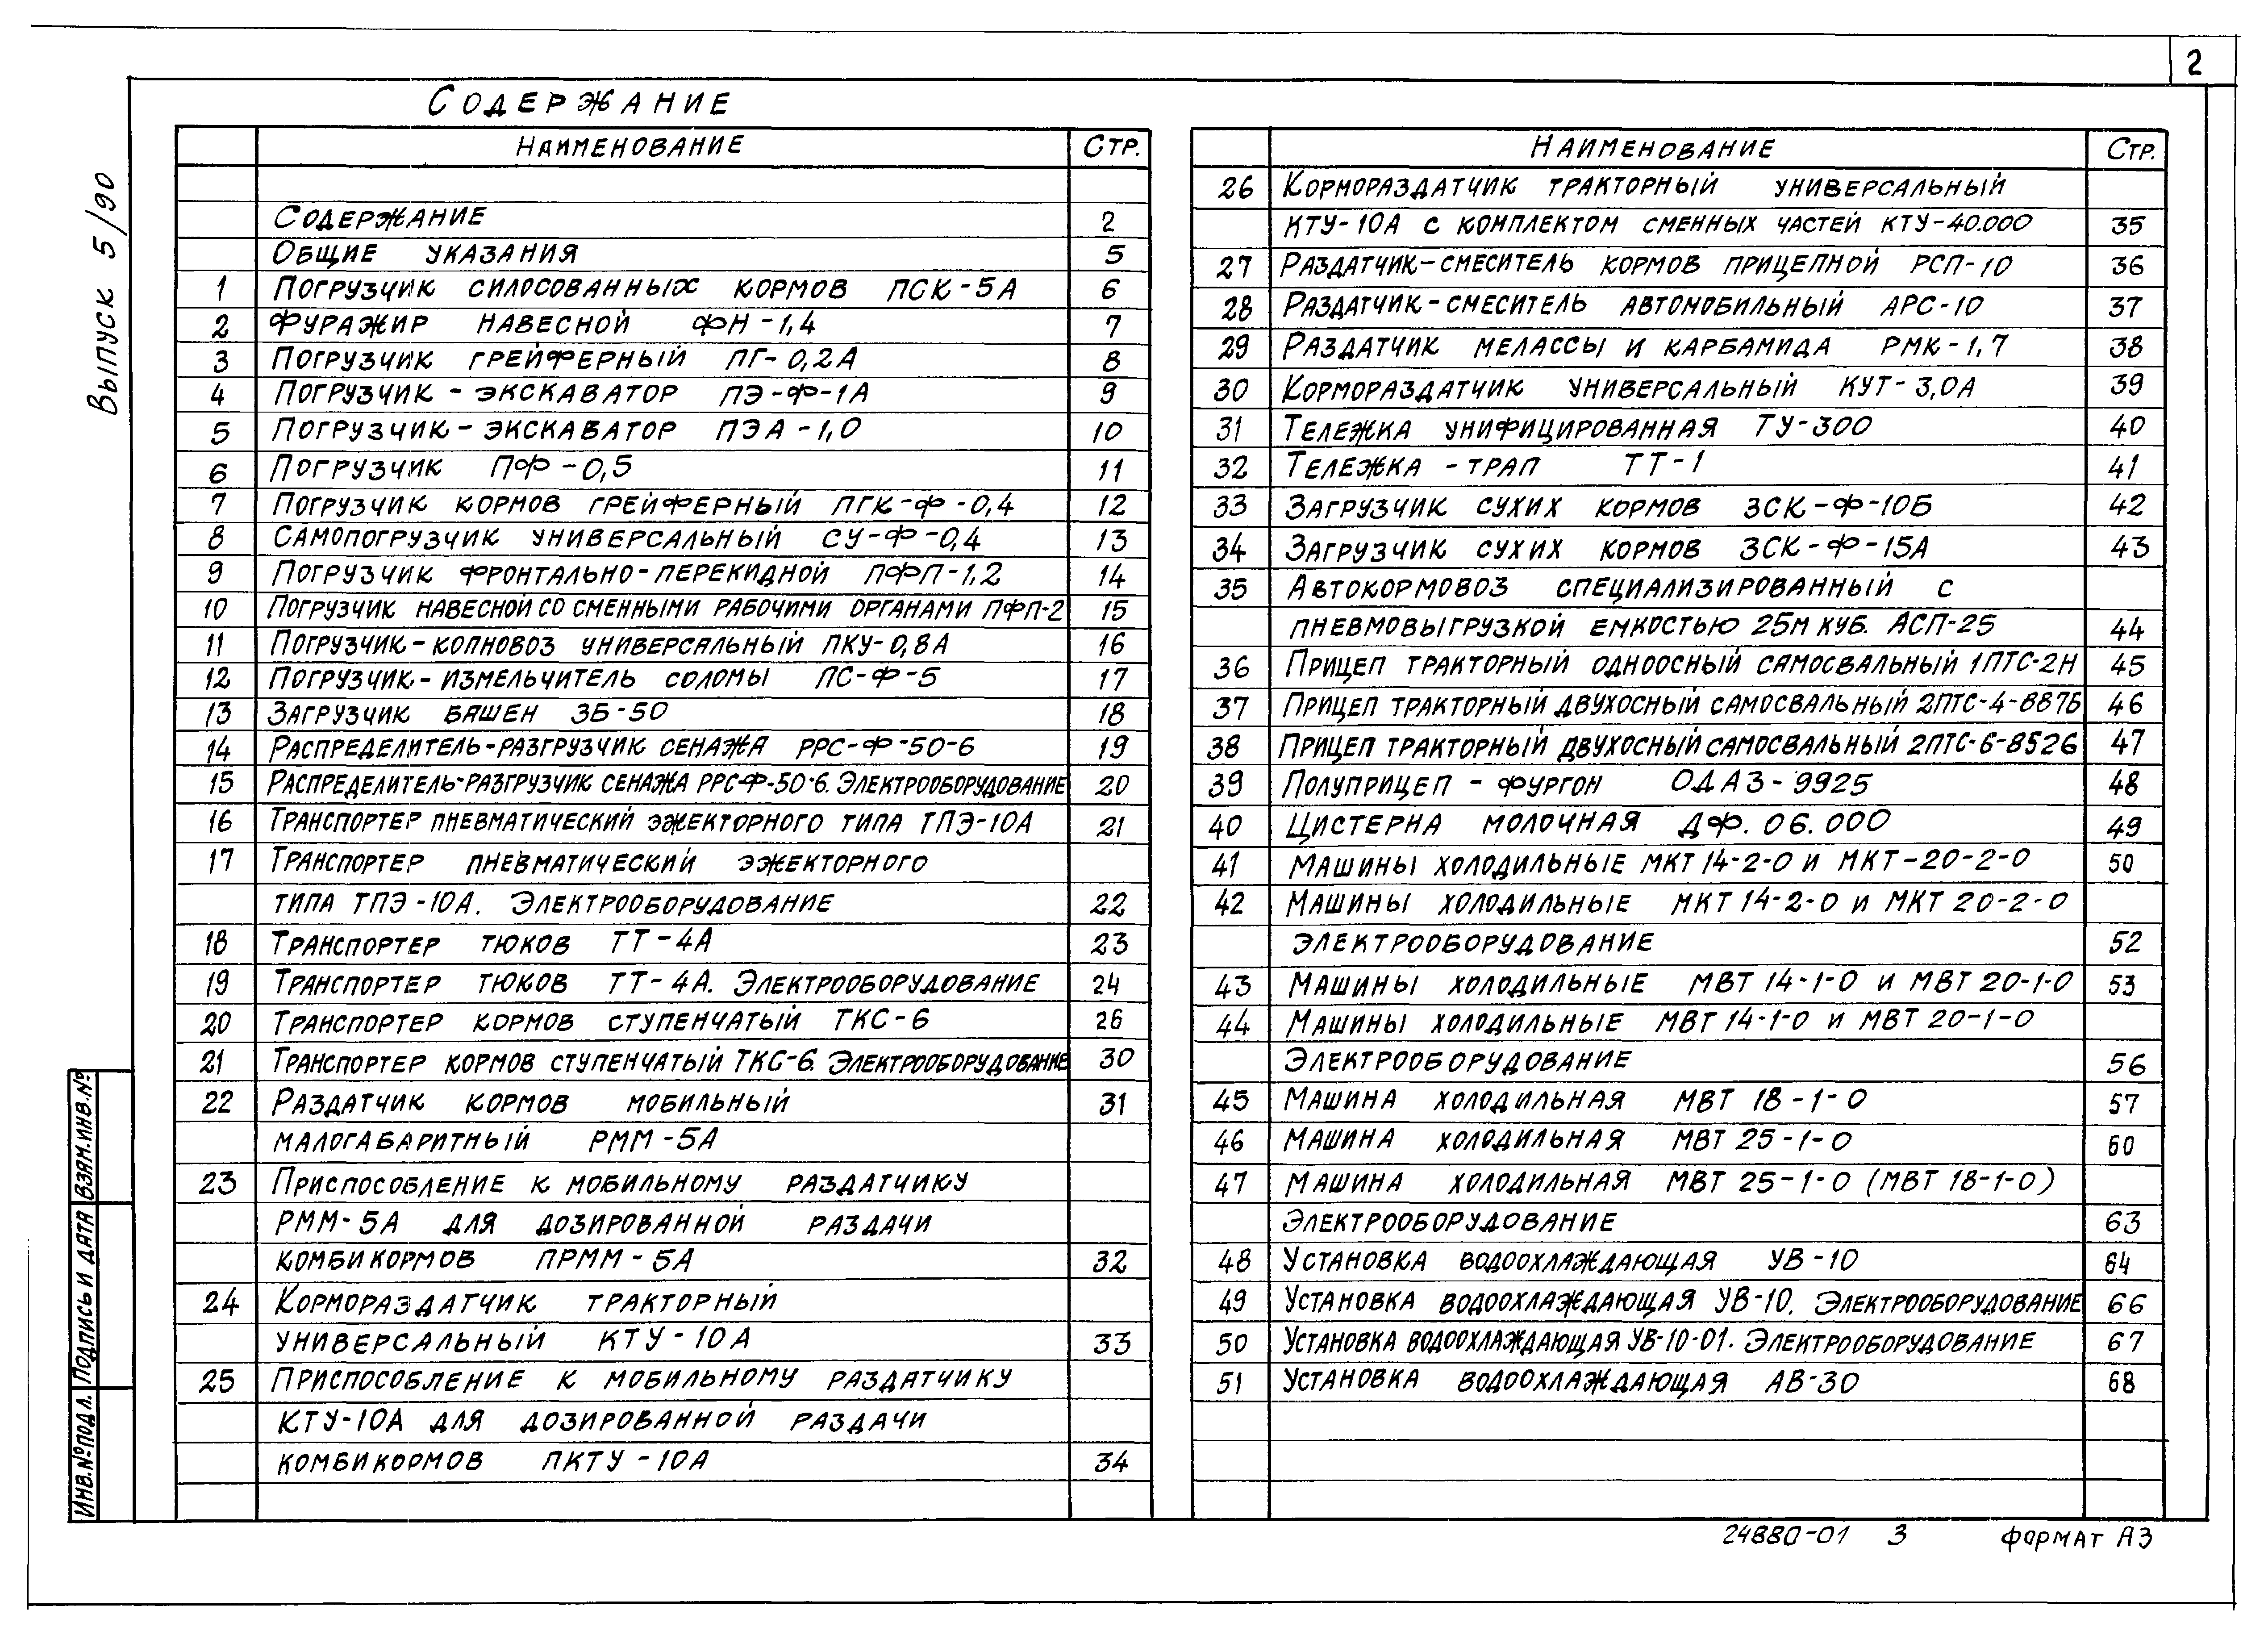 2
Содержание
Выпуск 5/90
Наименование Стр.
Содержание 2
Общие указания 5
1 Погрузчик силосованных кормов ПСК-5А 6
2 Фуражир навесной ФН-1,4 7
3 Погрузчик грейферный ПГ-0,2А 8
4 Погрузчик-экскаватор ПЭ-Ф-1А 9
5 Погрузчик-экскаватор ПЭА-1,0 10
6 Погрузчик ПФ-0,5 11
7 Погрузчик кормов грейферный ПГК-Ф-0,4 12
8 Самопогрузчик универсальный СУ-Ф-0,4 13
9 Погрузчик фронтально-перекидной ПФП-1,2 14
10 Погрузчик навесной со сменными рабочими органами ПФП-2 15
11 Погрузчик-копновоз универсальный ПКУ-0,8А 16
12 Погрузчик-измельчитель соломы ПС-Ф-5 17
13 Загрузчик башен ЗБ-50 18
14 Распределитель-разгрузчик сенажа РРС-Ф-50-6 19
15 Распределитель-разгрузчик сенажа РРС-Ф-50-6. Электрооборудование 20
16 Транспортер пневматический эжекторного типа ТПЭ-10А 21
17 Транспортер пневматический эжекторного
типа ТПЭ-10А. Электрооборудование 22
18 Транспортер тюков ТТ-4А 23
19 Транспортер тюков ТТ-4А. Электрооборудование 24
20 Транспортер кормов ступенчатый ТКС-6 26
21 Транспортер кормов ступенчатый ТКС-6. Электрооборудование 30
22 Раздатчик кормов мобильный 31
малогабаритный РММ-5А
23 Приспособление к мобильному раздатчику
РММ-5А для дозированной раздачи
комбикормов ПРММ-5А 32
24 Кормораздатчик тракторный
универсальный КТУ-10А 33
25 Приспособление к мобильному раздатчику
КТУ-10А для дозированной раздачи
комбикормов ПКТУ-10А 34
Наименование Стр.
26 Кормораздатчик тракторный универсальный
КТУ-10А с комплектом сменных частей КТУ-40.000 35
27 Раздатчик-смеситель кормов прицепной РСП-10 36
28 Раздатчик-смеситель автомобильный АРС-10 37
29 Раздатчик мелассы и карбамида РМК-1,7 38
30 Кормораздатчик универсальный КУТ-3,0А 39
31 Тележка унифицированная ТУ-300 40
32 Тележка-трап ТТ-1 41
33 Загрузчик сухих кормов ЗСК-Ф-10Б 42
34 Загрузчик сухих кормов ЗСК-Ф-15А 43
35 Автокормовоз специализированный с
пневмовыгрузкой емкостью 25м куб. АСП-25 44
36 Прицеп тракторный одноосный самосвальный 1ПТС-2Н 45
37 Прицеп тракторный двухосный самосвальный 2ПТС-4-887Б 46
38 Прицеп тракторный двухосный самосвальный 2ПТС-6-8526 47
39 Полуприцеп-фургон ОДАЗ-9925 48
40 Цистерна молочная ДФ.06.000 49
41 Машины холодильные МКТ 14-2-0 и МКТ-20-2-0 50
42 Машины холодильные МКТ 14-2-0 и МКТ 20-2-0
электрооборудование 52
43 Машины холодильные МВТ 14-1-0 и МВТ 20-1-0 53
44 Машины холодильные МВТ 14-1-0 и МВТ 20-1-0
Электрооборудование 56
45 Машина холодильная МВТ 18-1-0 57
46 Машина холодильная МВТ 25-1-0 60
47 Машина холодильная МВТ 25-1-0 (МВТ 18-1-0)
Электрооборудование 63
48 Установка водоохлаждающая УВ-10 64
49 Установка водоохлаждающая УВ-10. Электрооборудование 66
50 Установка водоохлаждающая УВ-10-01. Электрооборудование 67
51 Установка водоохлаждающая АВ-30 68
Инв.№подл. Подпись и дата Взям.инв.№
24880-01 3 формат А3